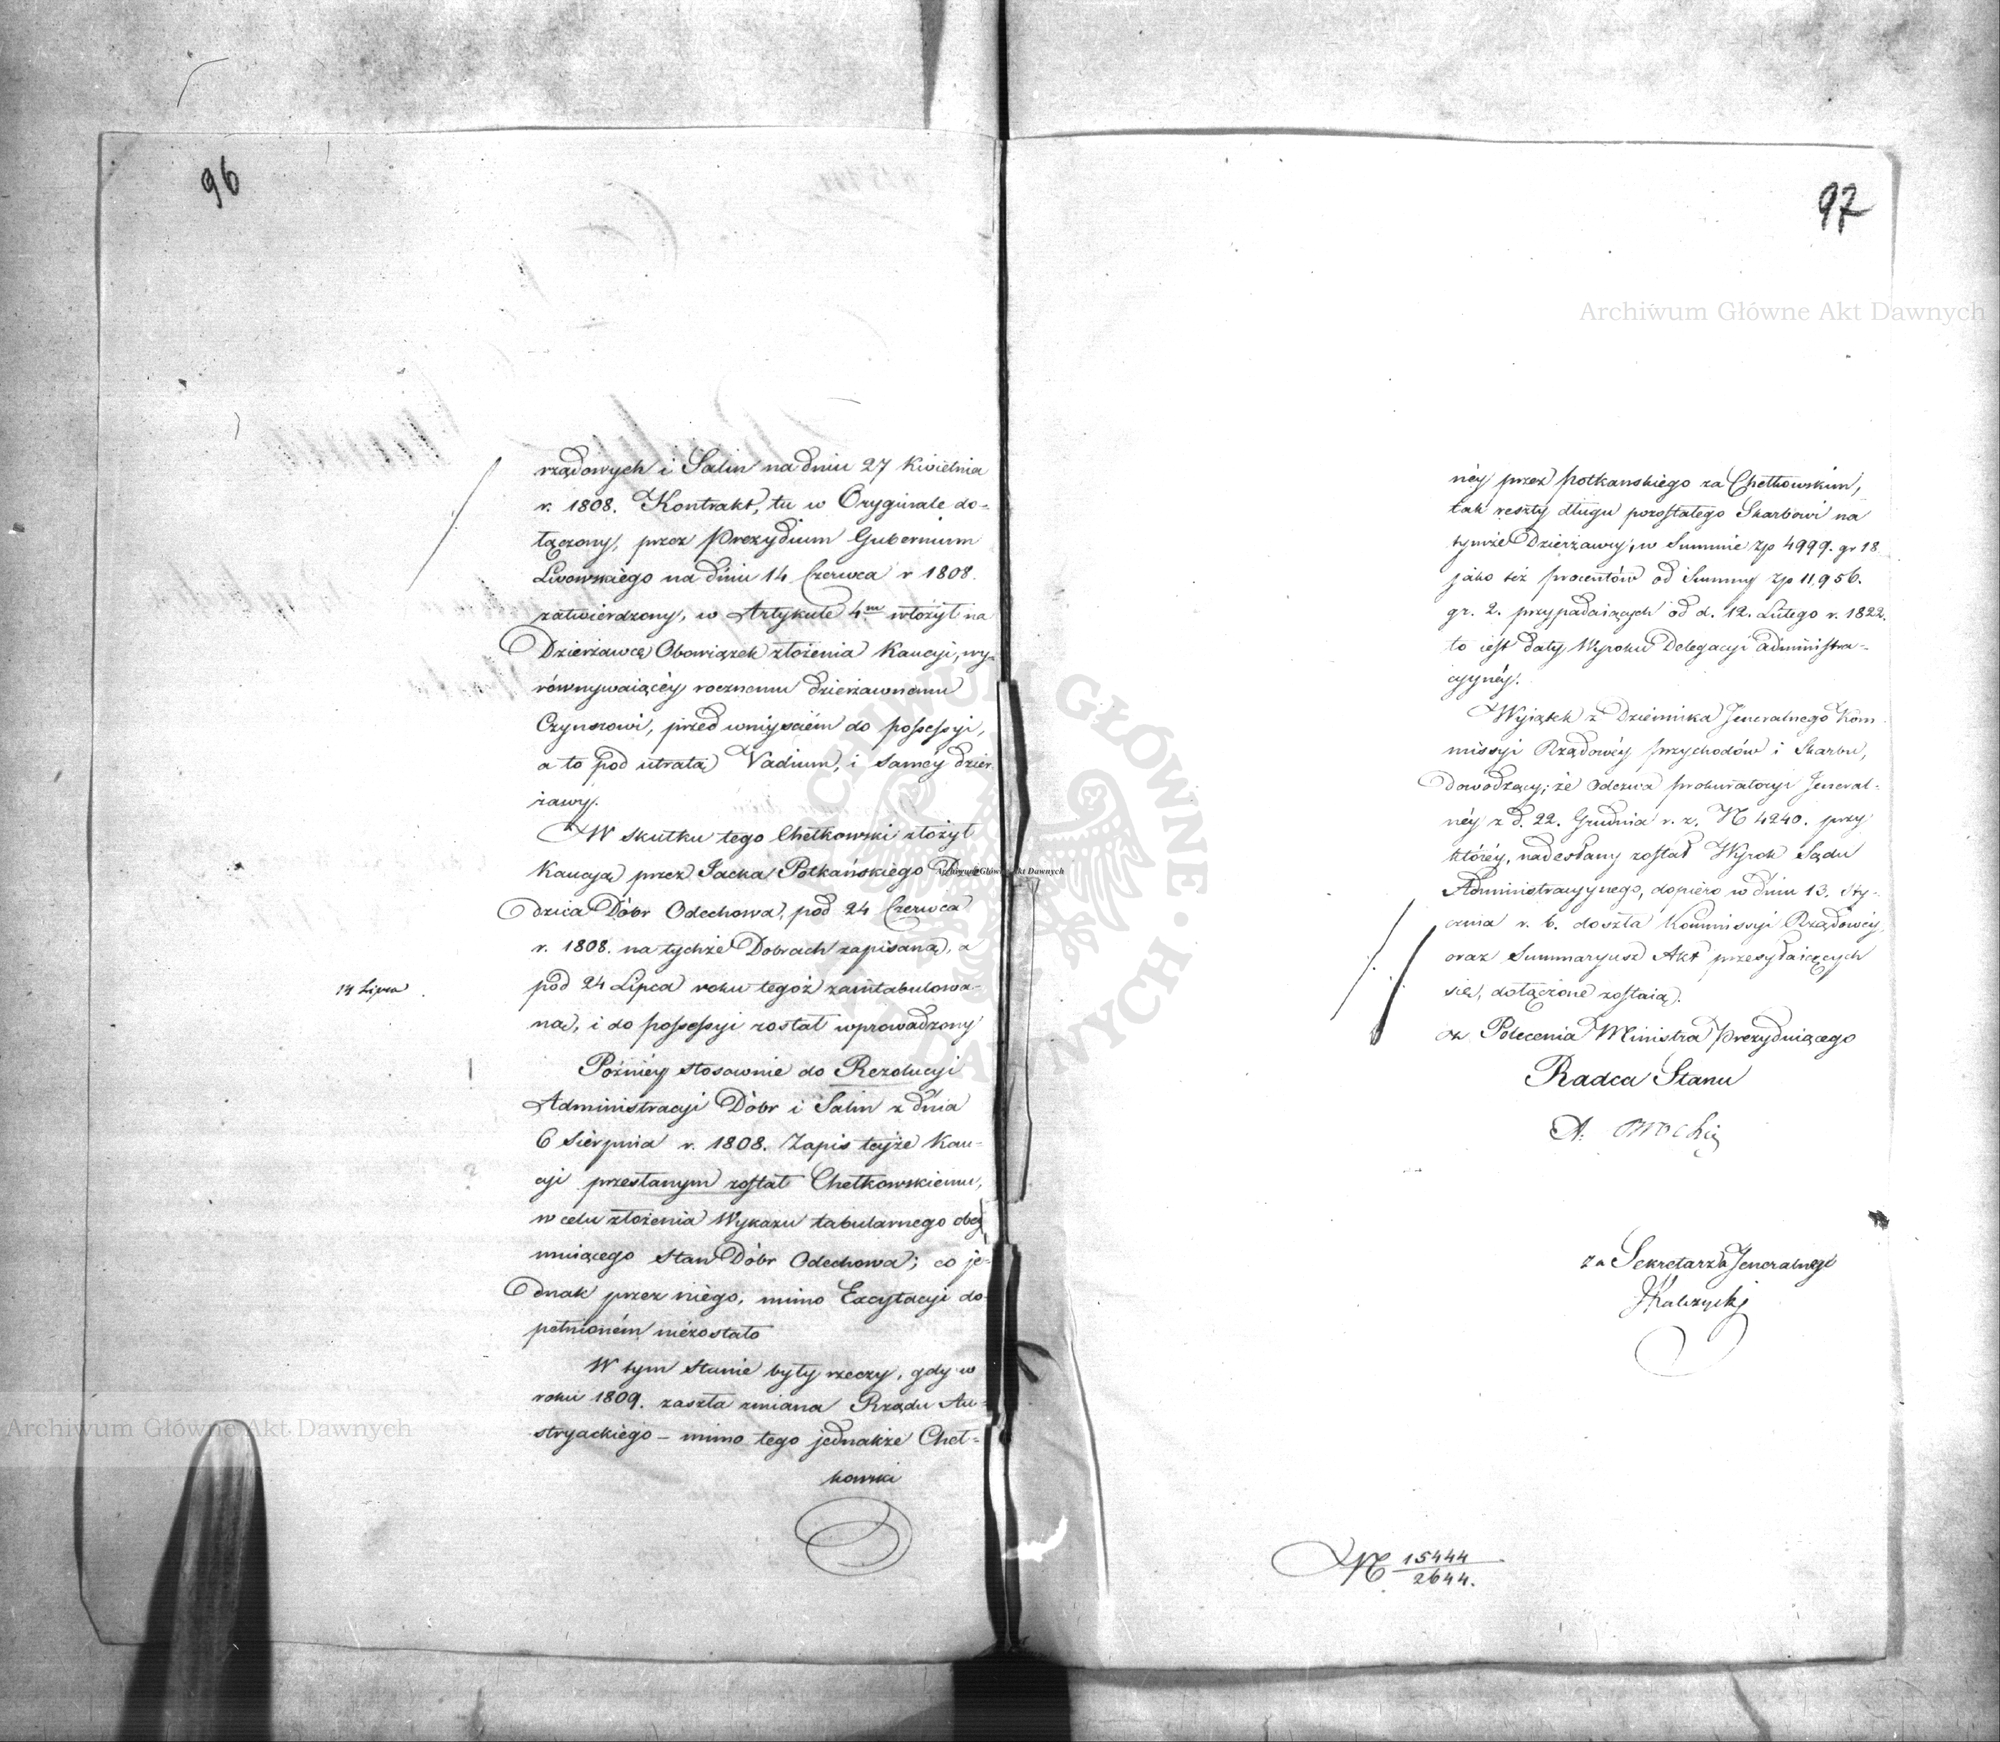 96
rządowych i Salin na dniu 27 Kwietnia
r. 1808. Kontrakt, tu w Oryginale do-
łączony, przez Prezydium Gubernium
Lwowskiego na dniu 14 Czerwca r 1808.
zatwierdzony, w Artykule 4m włożył na
Dzierżawcę Obowiązek złożenia Kaucyi, wy-
równywaiącéy rocznemu dzierżawnemu
Czynszowi, przed wniyściem do possessyi,
a to pod utratą Vadium, i saméy dzier-
żawy.
W skutku tego Chełkowski złożył
Kaucyą przez Jacka Potkańskiego Dzie-
dzica Dóbr Odechowa, pod 24 Czerwca
r. 1808. na tychże Dobrach zapisaną, a
pod 24 Lipca roku tegoż zaintabulowa-
ną, i do possessyi został wprowadzony
14 Lipca
Późniéy stosownie do Rezolucyi
Administracyi Dóbr i Salin z dnia
6 Sierpnia r. 1808. Zapis tejże Kau-
cyi przesłanym został Chełkowskiemu,
w celu złożenia Wykazu tabularnego obey-
muiącego Stan Dóbr Odechowa; co je-
dnak przez niego, mimo Excytacyi do-
pełnioném niezostało
W tym stanie były rzeczy, gdy w
roku 1809. zaszła zmiana Rządu Au-
stryackiego – mimo tego jednakże Cheł-
kowski
97
néy przez Potkanskiego za Chełkowskim,
tak reszty długu pozostałego Skarbowi na
tymże Dzierżawcy, w Summie zp 4999. gr 18.
jako też procentów od Summy zp 11,956.
gr. 2. przypadaiących od d. 12. Lutego r. 1822.
to iest daty Wyroku Delegacyi administra-
cyjnéy.
Wyiątek z Dziennika Jeneralnego Kom-
missyi Rządowéy Przychodów i Skarbu,
dowodzący, że Odezwa Prokuratoryi Jeneral-
néy z d. 22. Grudnia r. z. N 4240. przy
któréy, nadesłany został Wyrok Sądu
Administracyynego, dopiero w dniu 13. Sty-
cznia r. b. doszła Kommissyi Rządowéy,
oraz Summaryusz Akt przesyłaiących
się, dołączone zostaią.
z Polecenia Ministra Prezyduiącego
Radca Stanu
za Sekretarza Jeneralnego
N 15444
2644.
Archiwum Główne Akt Dawnych
Archiwum Główne Akt Dawnych
Archiwum Główne Akt Dawnych
ARCHIWUM GŁÓWNE · AKT DAWNYCH ·